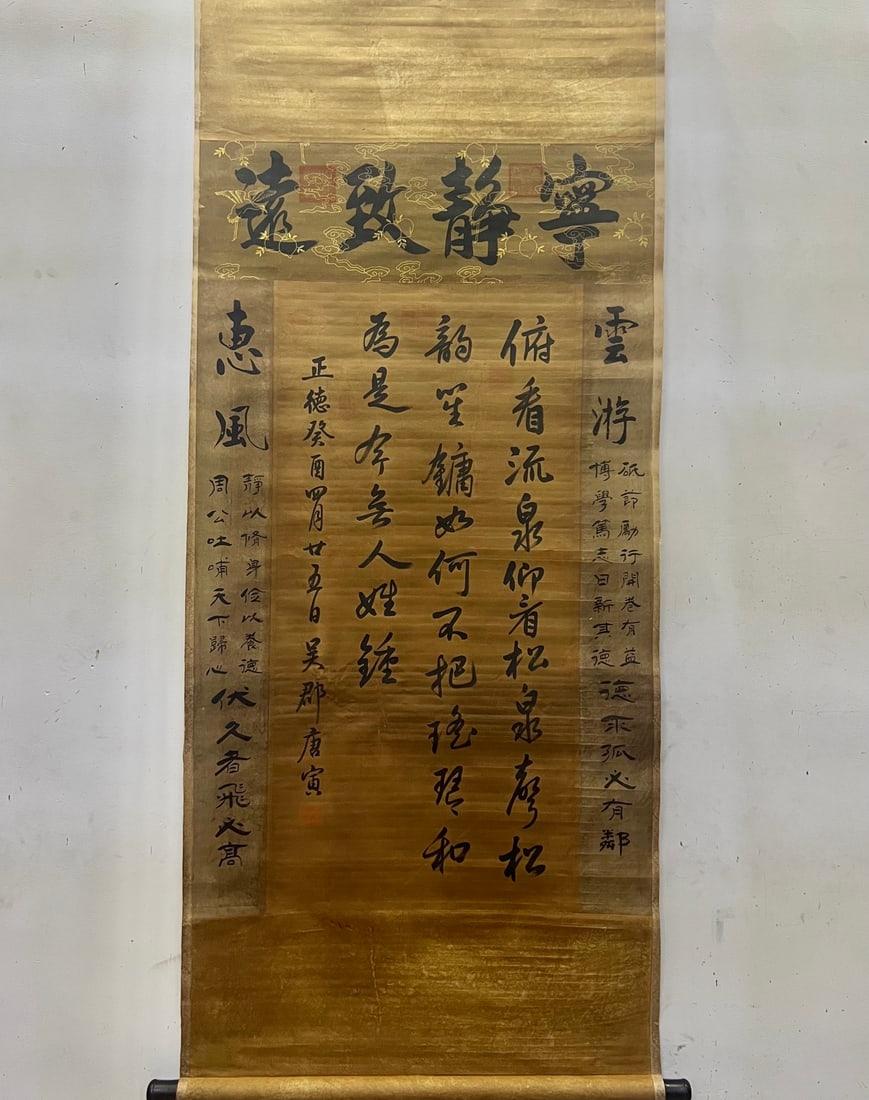 寧靜致遠
雲游
砥節勵行開卷有益
博學篤志日新其德
德不孤必有鄰
俯看流泉仰看松泉聲松
韵笙鏞如何不把瑤琴和
為是今無人姓鍾
正德癸酉四月廿五日吳郡唐寅
惠風
靜以脩身儉以養德
周公吐哺天下歸心
伏久者飛必高